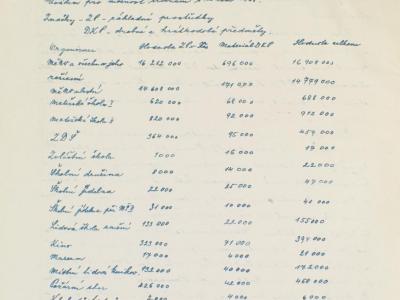 Značky - ZP - základné prostriedky
DKP - drobné a krátkodobé predmety.
Organizace Hodnota ZP - Kčs Materiál DKP Hodnota celkem
16 212 000 696 000 16 908 000
zařízení
14 608 000 171 000 14 779 000
Mateřská škola I 620 000 68 000 688 000
Mateřská škola II 820 000 92 000 912 000
ZDŠ 364 000 95 000 459 000
Zvláštní škola 1000 16 000 17 000
Školní družina 8000 14 000 22 000
Školní jídelna 22 000 25 000 47 000
Školní jídelna při MŠ 31 000 10 000 41 000
Lidová škola umění 133 000 22 000 155000
Kino 323 000 71 000 394 000
Museum 17 000 4 000 21 000
Místní lidová knihov. 132 000 40 000 172 000
Požární sbor 426 000 42 000 468 000
2 000 4 000 6 000